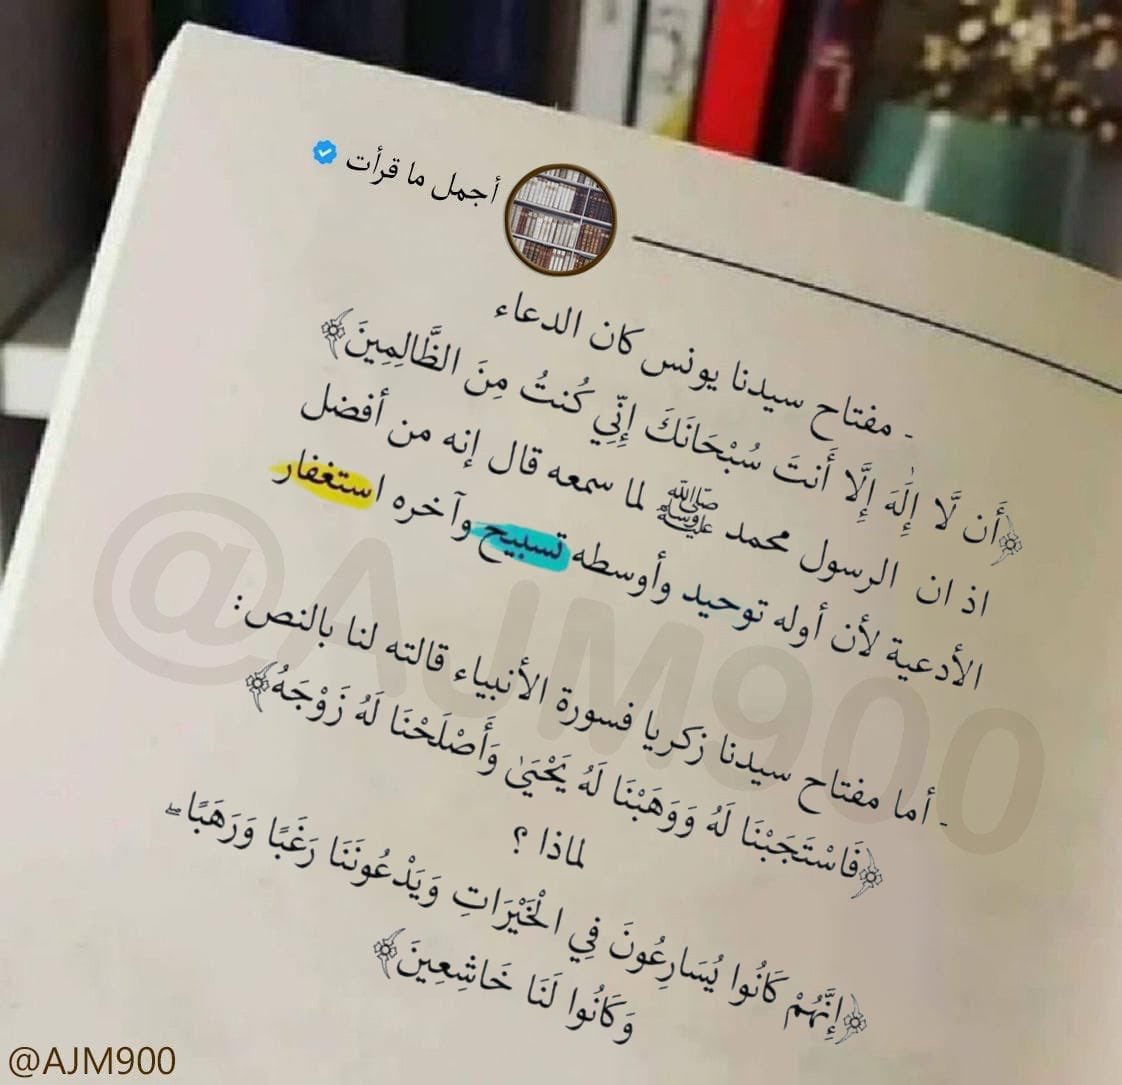 أجمل ما قرأت
- مفتاح سيدنا يونس كان الدعاء
﴿أَن لَّا إِلَٰهَ إِلَّا أَنتَ سُبْحَانَكَ إِنِّي كُنتُ مِنَ الظَّالِمِينَ﴾
اذ ان الرسول محمد ﷺ لما سمعه قال إنه من أفضل
الأدعية لأن أوله توحيد وأوسطه تسبيح وآخره استغفار
- أما مفتاح سيدنا زكريا فسورة الأنبياء قالته لنا بالنص:
﴿فَاسْتَجَبْنَا لَهُ وَوَهَبْنَا لَهُ يَحْيَىٰ وَأَصْلَحْنَا لَهُ زَوْجَهُ﴾
لماذا ؟
﴿إِنَّهُمْ كَانُوا يُسَارِعُونَ فِي الْخَيْرَاتِ وَيَدْعُونَنَا رَغَبًا وَرَهَبًا ۖ
وَكَانُوا لَنَا خَاشِعِينَ﴾
@AJM900
@AJM900